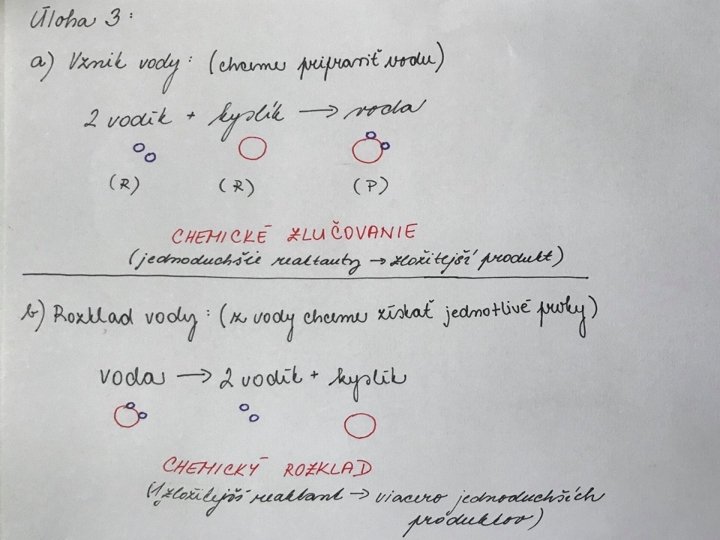 Úloha 3:
a) Vznik vody: (chceme pripraviť vodu)
2 vodík + kyslík → voda
(R) (R) (P)
CHEMICKÉ ZLUČOVANIE
(jednoduchšie reaktanty → zložitejší produkt)
b) Rozklad vody: (z vody chceme získať jednotlivé prvky)
voda → 2 vodík + kyslík
CHEMICKÝ ROZKLAD
(1 zložitejší reaktant → viacero jednoduchších
produktov)